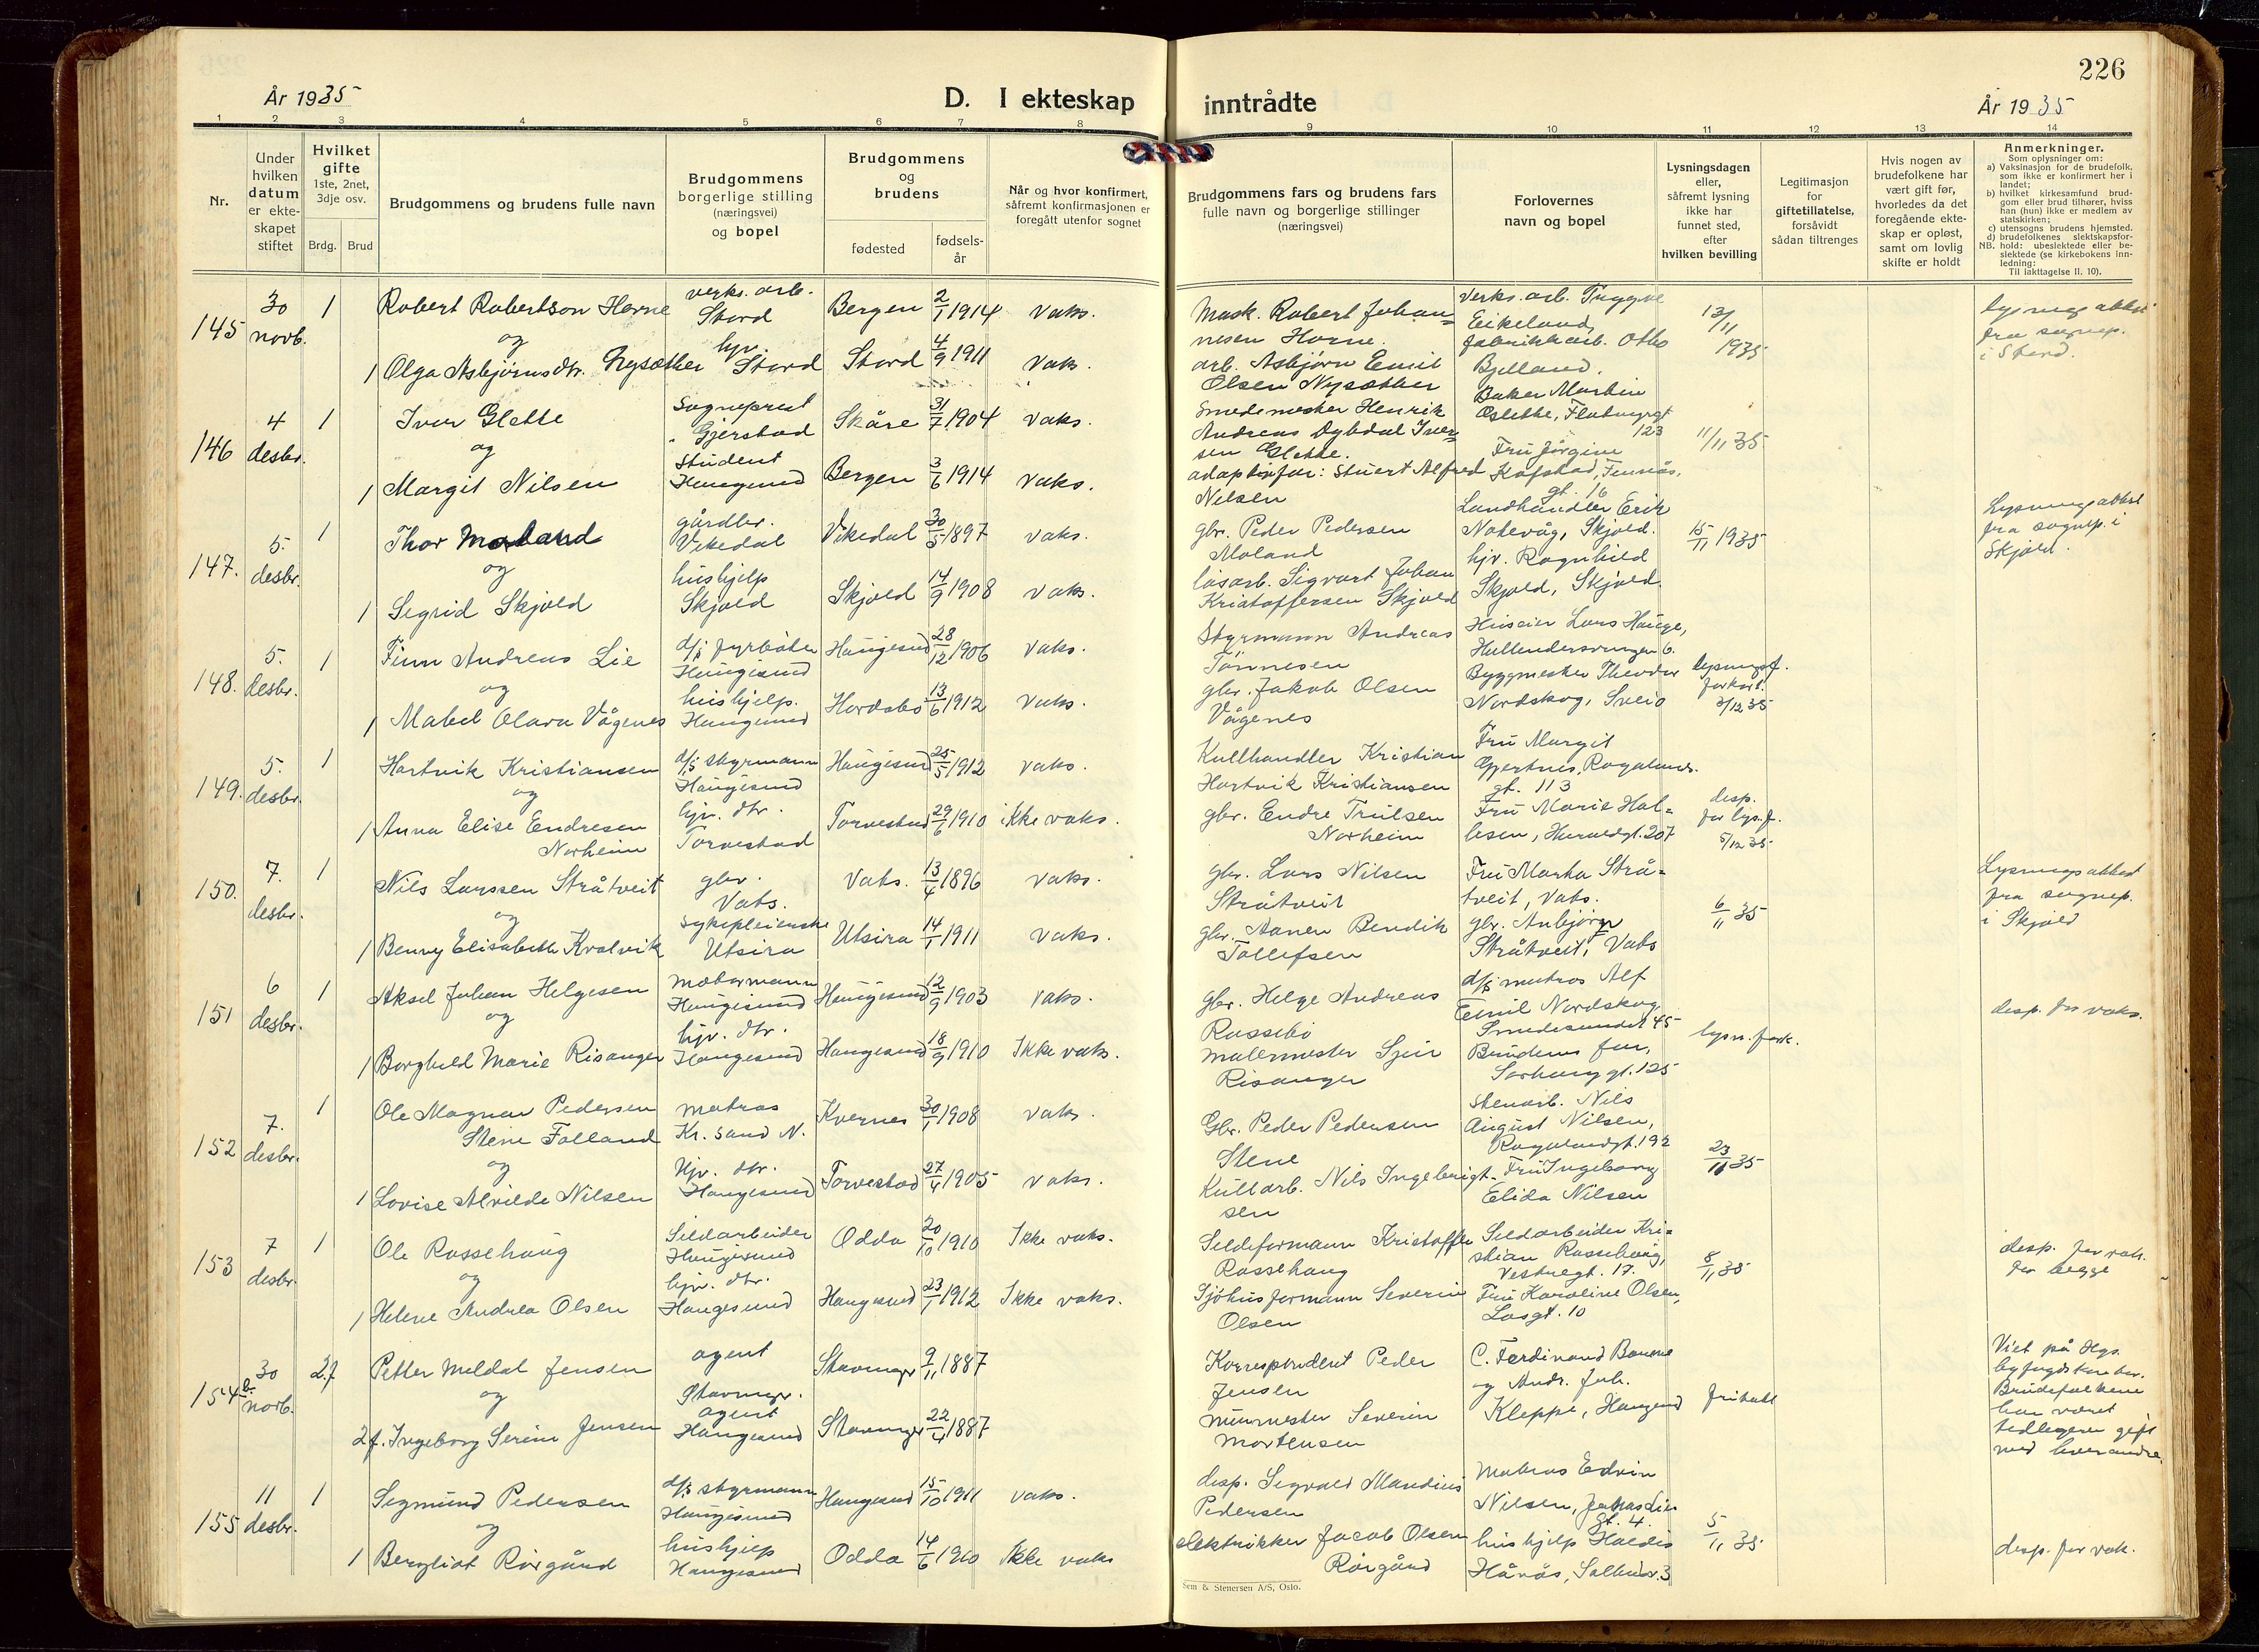 226
År 1935
D. I ekteskap inntrådte
År 1935
1 2 3 4 5 6 7 8 9 10 11 12 13 14
Nr.
Under hvilken datum er ekteskapet stiftet
Hvilket gifte
1ste, 2net, 3dje osv.
Brdg. Brud
Brudgommens og brudens fulle navn
Brudgommens borgerlige stilling (næringsvei) og bopel
Brudgommens og brudens
fødested
fødselsår
Når og hvor konfirmert, såfremt konfirmasjonen er foregått utenfor sognet
Brudgommens fars og brudens fars fulle navn og borgerlige stillinger (næringsvei)
Forlovernes navn og bopel
Lysningsdagen eller, såfremt lysning ikke har funnet sted, efter hvilken bevilling
Legitimasjon for giftetillatelse, forsåvidt sådan tiltrenges
Hvis nogen av brudefolkene har vært gift før, hvorledes da det foregående ekteskap er opløst, samt om lovlig skifte er holdt
Anmerkninger.
Som oplysninger om:
a) Vaksinasjon for de brudefolk, som ikke er konfirmert her i landet;
b) hvilket kirkesamfund brudgom eller brud tilhører, hviss han (hun) ikke er medlem av statskirken;
c) utensogns brudens hjemsted.
d) brudefolkenes slektskapsforhold: ubeslektede eller beslektede (se kirkebokens innledning:
NB.
Til iakttagelse II. 10).
145 30 novb. 1 Robert Robertson Horne verks. arb. Stord Bergen 2/1 1914 vaks.
og
1 Olga Asbjørnsdtr. Nysæther hjv. Stord Stord 4/9 1911 vaks.
Mask. Robert Johannesen Horne.
arb. Asbjørn Emil Olsen Nysæther
verks. arb. Tryggve Eikeland,
fabrikkarb. Otto Bjelland.
13/11 1935
lysningsattest fra sognep. i Stord.
146 4 desbr. 1 Iver Glette Sogneprest Gjerstad Skåre 31/7 1904 vaks.
og
1 Margit Nilsen Student Haugesund Bergen 3/6 1914 vaks.
Smedmester Henrik Andreas Dybdal Iversen Glette.
adoptivfar: Stuert Alfred Nilsen
Baker Martin Oslette, Flotmyrgt 123
Fru Jørgine Kofstad, Fennås. gt. 16
11/11 35
147. 5. desbr. 1 Thor Moland gårdbr. Vikedal Vikedal 30/5 1897 vaks.
og
1 Sigrid Skjold hushjelp Skjold Skjold 14/9 1908 vaks.
gbr. Peder Pedersen Moland
løsarb. Sigvart Johan Kristoffersen Skjold
Landhandler Erik Notevåg, Skjold.
hjv. Ragnhild Skjold, Skjold.
15/11 1935
Lysningsattest fra sognep. i Skjold.
148. 5. desbr. 1 Finn Andreas Lie d/s fyrbøter Haugesund Haugesund 28/12 1906 vaks.
og
1 Mabel Olava Vågenes hushjelp. Haugesund Hordabø 13/6 1912 vaks.
Styrmann Andreas Tønnesen
gbr. Jakob Olsen Vågenes
Huseier Lars Hauge,
Byggmester Theodor Nordskog, Sveio
lysningsf. forkort. 3/12 35
149. 5. desbr. 1 Hartvik Kristiansen d/s styrmann Haugesund Haugesund 25/5 1912 vaks.
og
1 Anna Elise Endresen Norheim hjv. dtr. Torvestad Torvestad 29/6 1910 ikke vaks.
Kullhandler Kristian Hartvik Kristiansen
gbr. Endre Trulsen Norheim
Fru Margit Gjertnes, Rogalands. gt. 113
Fru Marie Hallesen, Haraldgt. 207
desp. for lys. f. 5/12 35
150. 7. desbr. 1 Nils Larssen Stråtveit gbr. Vats. Vats. 13/4 1896 vaks.
og
1 Benny Elisabeth Kvalvik sykepleierske Utsira Utsira 14/1 1911 vaks.
gbr. Lars Nilsen Stråtveit
gbr. Aanen Bendik Tollefsen
Fru Marta Stråtveit, Vats.
gbr. Anbjørn Stråtveit, Vats
6/11 35
Lysningsattest fra sognep. i Skjold
151 6 desbr. 1 Aksel Johan Helgesen motormann Haugesund Haugesund 12/9 1903 vaks.
og
1 Borghild Marie Risanger hjv. dtr. Haugesund Haugesund 18/9 1910 Ikke vaks.
gbr. Helge Andreas Rossebø
malermester Sjur Risanger
d/s matros Alf Emil Nordskog. Smedesundet 45
Brudens far, Sørhauggt. 125
lysn. fork.
desp. for vaks.
152 7. desbr. 1 Ole Magnar Pedersen Stene Folland matros Kr. sand N. Kvernes 30/1 1908 vaks.
og
1 Lovise Alvilde Nilsen Hjv. dtr. Haugesund Torvestad 27/4 1905 vaks.
Gbr. Peder Pedersen Stene
Kullarb. Nils Ingebrigtsen
Stenarb. Nils August Nilsen, Rogalandgt. 192
Fru Ingeborg Elida Nilsen
23/11 35
153 7 desbr. 1 Ole Rossehaug Sildarbeider Haugesund Odda 20/10 1910 Ikke vaks.
og
1 Helene Andrea Olsen hjv. dtr. Haugesund Haugesund 23/1 1912 Ikke vaks.
Sildeformann Kristoffer Rossehaug
Sjøhusformann Severin Olsen
Sildarbeider Kristian Rossehaug, Vestregt. 17.
Fru Karoline Olsen, Losgt. 10
8/11 35
desp. for vak. for begge
154 b. 30 novb. 2. f Petter Meldal Jensen agent Stavanger. Stavanger 9/11 1887
og
2 f. Ingeborg Serine Jensen agent Haugesund Stavanger 22/4 1887
Korrespondent Peder Jensen
murmester Severin Mortensen
C. Ferdinand Bonne og Andr. Joh. Kleppe, Haugesund
fritatt
Viet på Hgs. byfogdkontor. Brudefolkene har været tidligere gift med hverandre.
155 11 desbr. 1 Sigmund Pedersen d/s styrmann Haugesund Haugesund 15/10 1911 vaks.
og
1 Bergliot Rørgård hushjelp Haugesund Odda 14/6 1910 Ikke vaks
disp. Sigvald Mandius Pedersen
elektrikker Jacob Olsen Rørgård
Matros Edvin Nilsen, Jonas Lies gt. 4.
hushjelp Haldis Hårås,
5/11 35
desp. for vak.
Sem & Stenersen A/S, Oslo.